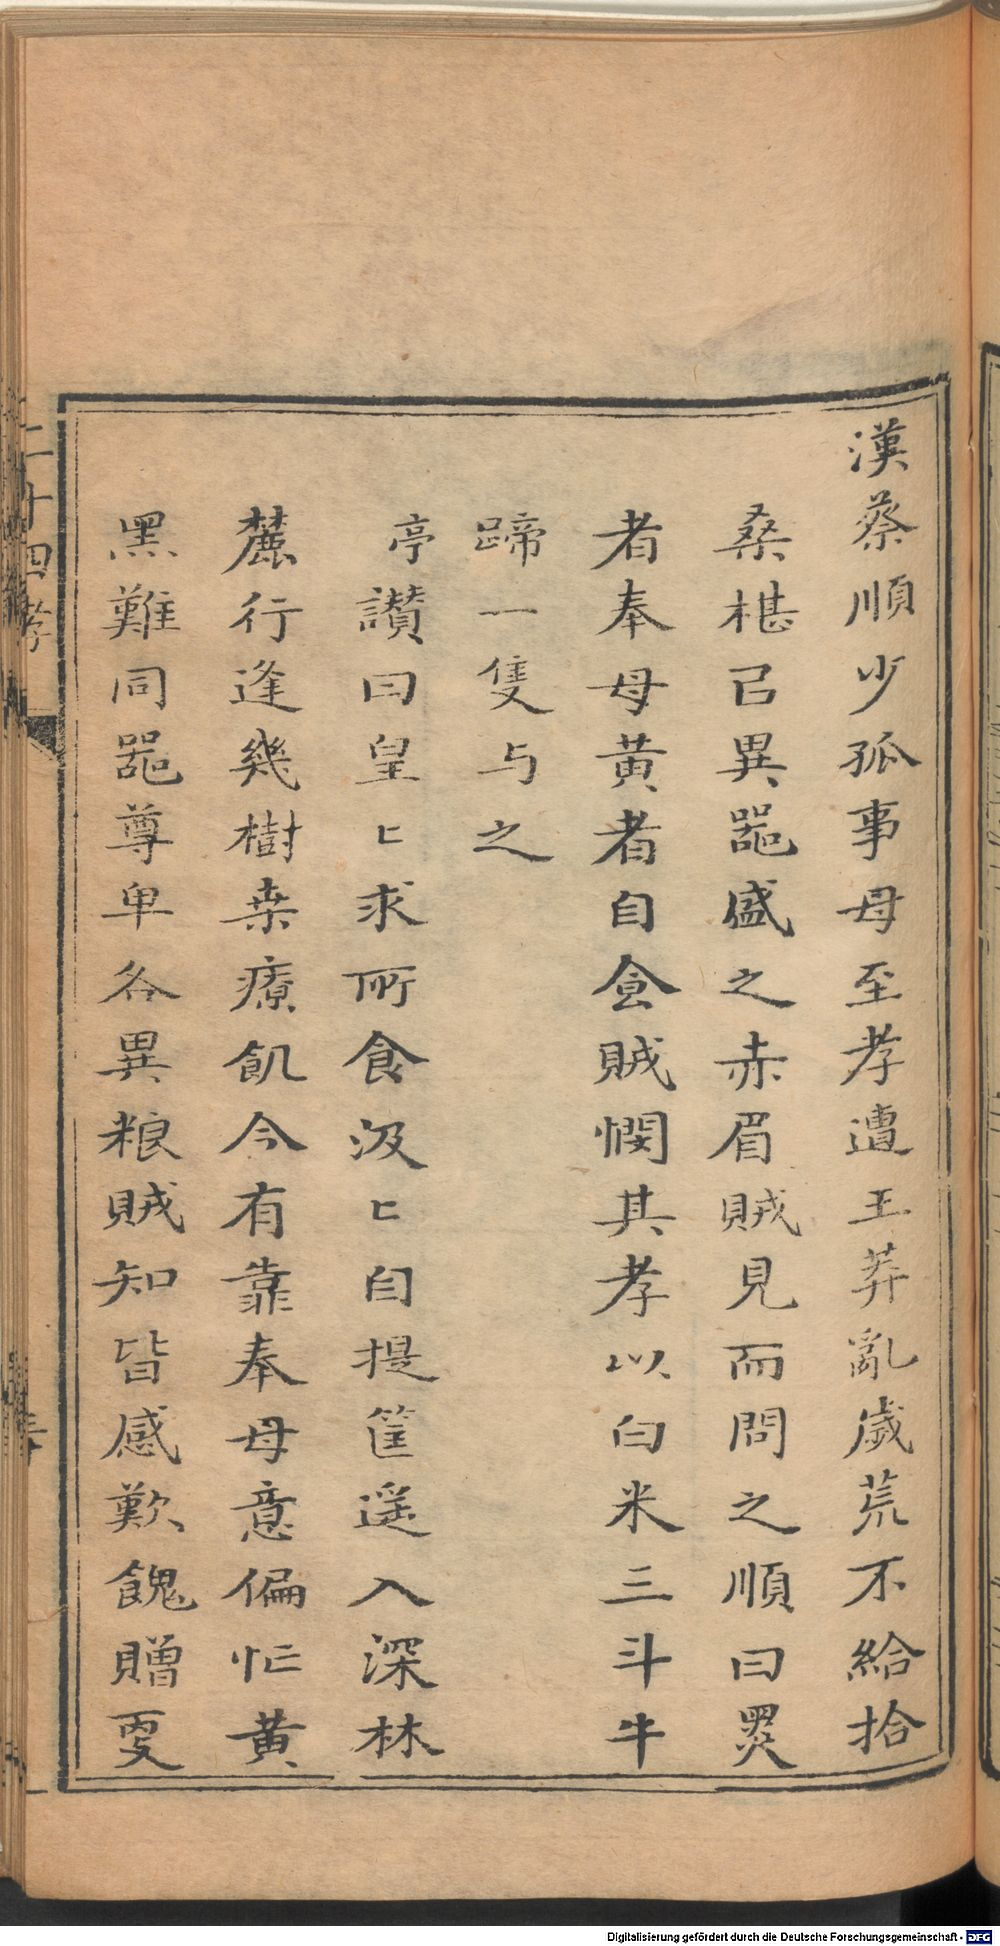 漢蔡順少孤事母至孝遭王莽亂歲荒不給拾
桑椹已異噐盛之赤眉賊見而問之順曰黒
者奉母黄者自食賊憫其孝以白米三斗牛
蹄一隻与之
亭讃曰皇〻求所食汲〻自提筐遥入深林
麓行逢幾樹桒療飢今有靠奉母意偏忙黄
黑難同噐尊卑各異粮賊知皆感歎餽贈更
二十四孝
Digitalisierung gefördert durch die Deutsche Forschungsgemeinschaft - DFG